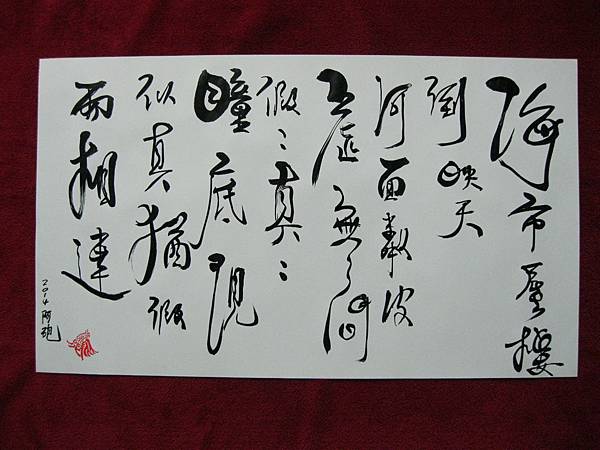 海市蜃樓
倒映天
河面波
無間
假:真:
瞳底現
似真猶假
兩相連
2014 阿砲